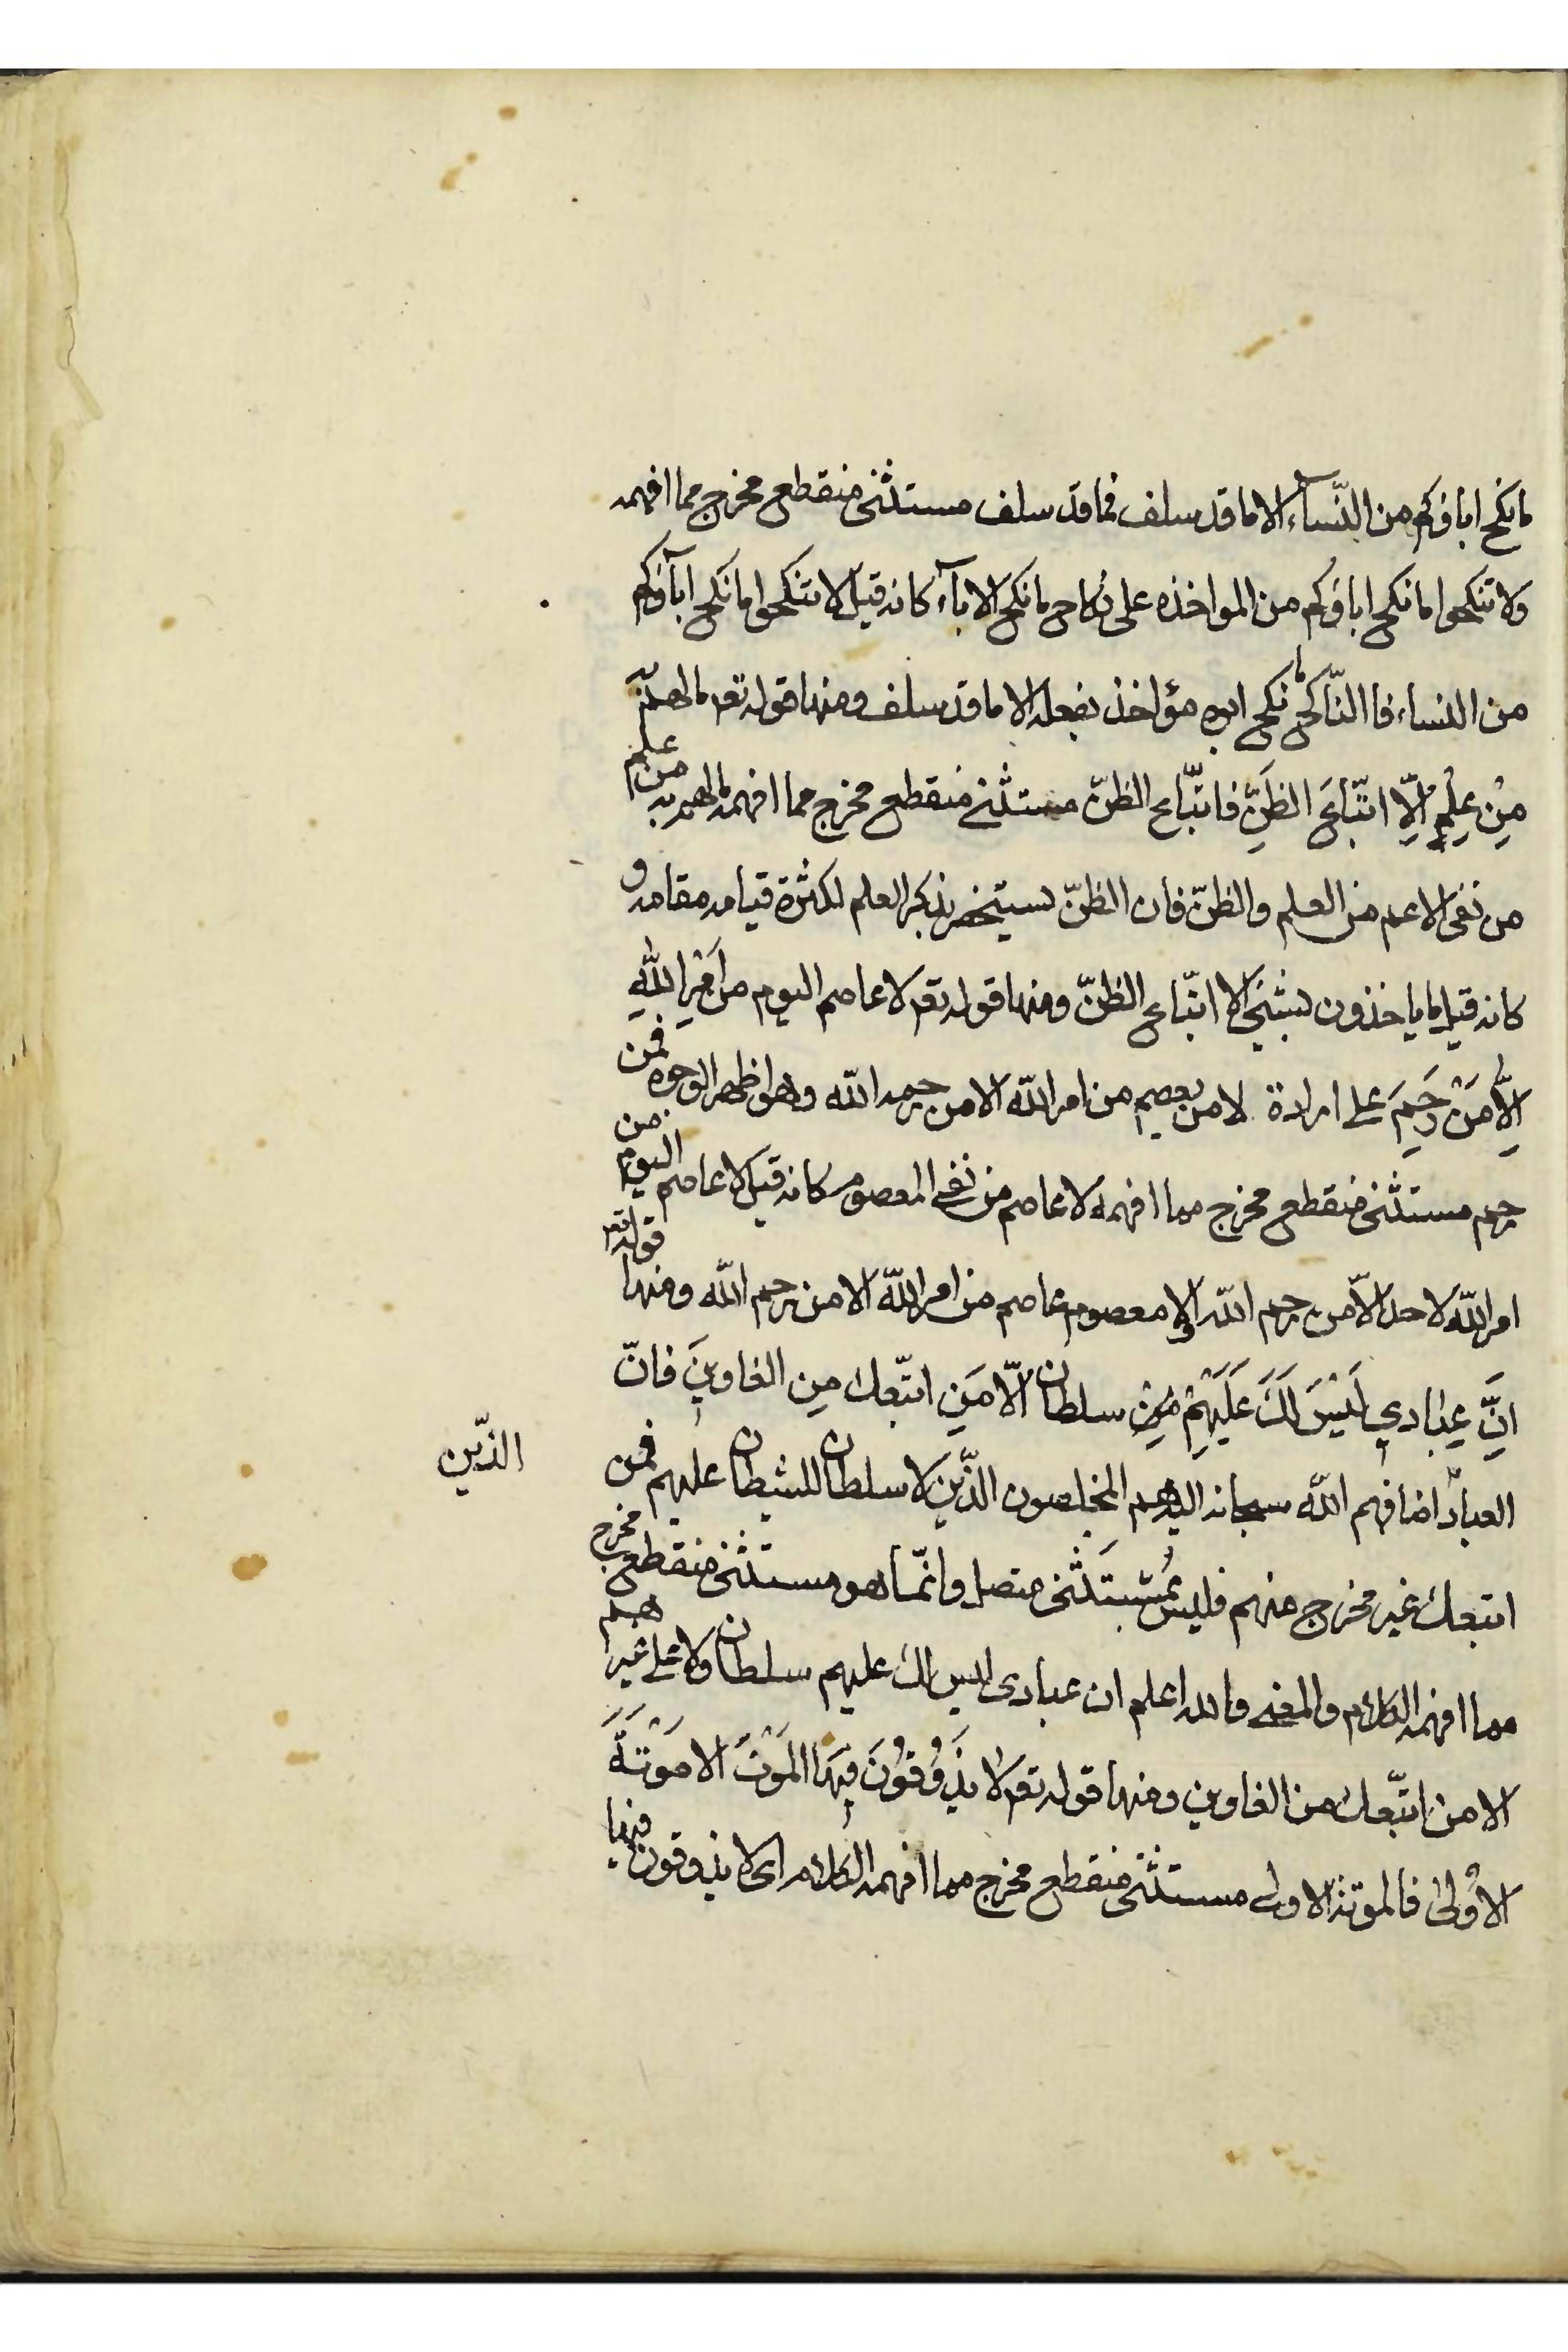 ما نكح اباؤكم من النّسآء الا ما قد سلف فما قد سلف مستثنى منقطع مخرج مما افهمه
ولا تنكحوا ما نكح اباؤكم من المواخذه على نكاح ما نكح الابآء كانه قيل لا تنكحوا ما نكح ابآؤكم
من النساء فا الناكح ما نكح ابوه مؤاخذ بفعله الا ما قد سلف ومنها قوله تعم ما لهم به
مِنْ عِلْمٍ اِلّا اتّبَاعَ الظَنِّ فاتّباع الظنّ مستثنى منقطع مخرج مما افهمه ما لهم به من علم
من نفى الاعم من العلم والظنّ فان الظنّ يستحضر بذكر العلم لكثرة قيامه مقامه و
كانه قيل ما ياخذون بشئ الا اتّباع الظنّ ومنها قوله تعم لا عاصم اليوم من اَمْرِ اللهِ
اِلّا مَنْ رَحِمَ على ارادة لا من يعصم من امر الله الا من رحمه الله وهو اظهر الوجوه فمن
رحم مستثنى منقطع مخرج مما افهمه لا عاصم من نفى المعصوم كانه قيل لا عاصم اليوم من
امر الله لاحد الاّ من رحم الله او لا معصوم عاصم من امر الله الا من رحم الله ومنها قوله تعم
اِنَّ عِبادي لَيْسَ لَكَ عَلَيْهِمْ مِنْ سلطان الّا مَنِ اتّبعك مِن الغاوينَ فانّ
العباد اضافهم الله سبحانه اليه هم المخلصون الذّين لا سلطان للشيطان عليهم فمن
الذّين
اتبعك غير مخرج منهم فليس بمُسْتَثنى متصل وانّما هو مستثنى منقطع مخرج
مما افهمه الكلام والمعنى والله اعلم ان عبادى ليس لك عليهم سلطان ولا على غيرهم
الا من اتبّعك من الغاوين ومنها قوله تعم لا يَذُوْقُوْنَ فِيْهَا المَوْتَ الا مَوْتَةَ
الاُوْلىٰ فالموتة الاولى مستثنى منقطع مخرج مما افهمه الكلام اى لا يذوقون فيها